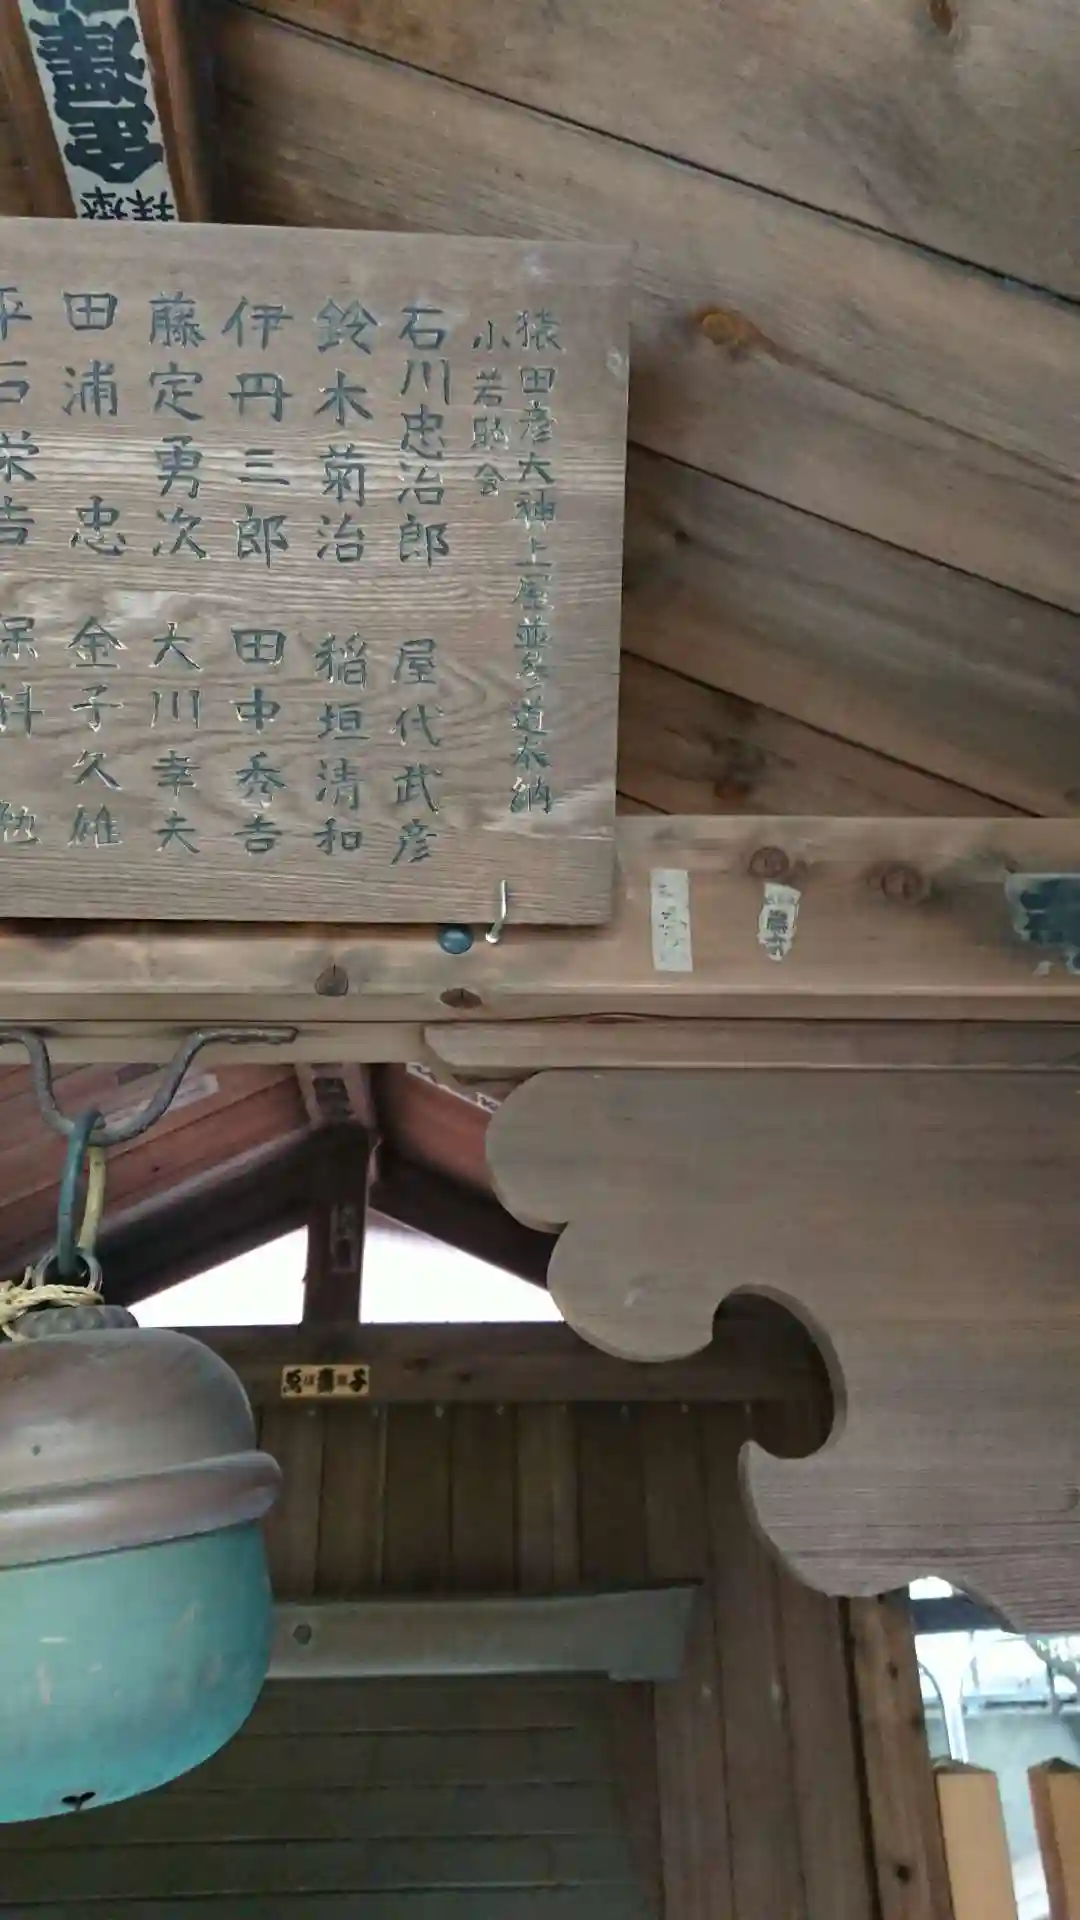 猿田彦大神上屋並参道奉納
小若睦会
石川忠治郎 屋代武彦
鈴木菊治 稲垣清和
伊丹三郎 田中秀吉
藤定勇次 大川幸夫
田浦忠 金子久雄
平戸栄吉 保科勉